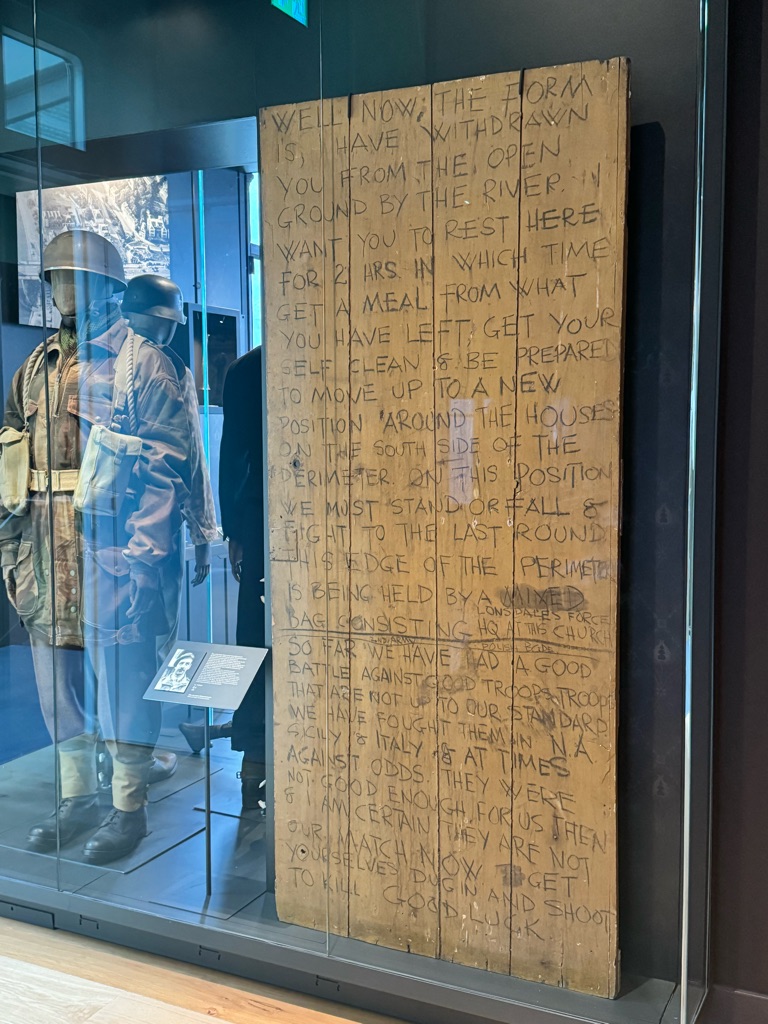 WELL NOW, THE FORM
IS, I HAVE WITHDRAWN
YOU FROM THE OPEN
GROUND BY THE RIVER. I
WANT YOU TO REST HERE
FOR 2 HRS. IN WHICH TIME
GET A MEAL FROM WHAT
YOU HAVE LEFT, GET YOUR
SELF CLEAN & BE PREPARED
TO MOVE UP TO A NEW
POSITION AROUND THE HOUSES
ON THE SOUTH SIDE OF THE
PERIMETER. ON THIS POSITION
WE MUST STAND OR FALL &
FIGHT TO THE LAST ROUND
THIS EDGE OF THE PERIMETER
IS BEING HELD BY A MIXED
LONSDALES FORCE
BAG CONSISTING HQ AT THIS CHURCH
POLISH BGDE
SO FAR WE HAVE HAD A GOOD
BATTLE AGAINST GOOD TROOPS, TROOPS
THAT ARE NOT UP TO OUR STANDARD
WE HAVE FOUGHT THEM IN N.A.
SICILY & ITALY & AT TIMES
AGAINST ODDS. THEY WERE
NOT GOOD ENOUGH FOR US THEN
& I AM CERTAIN THEY ARE NOT
OUR MATCH NOW GET
YOURSELVES DUG IN AND SHOOT
TO KILL GOOD LUCK